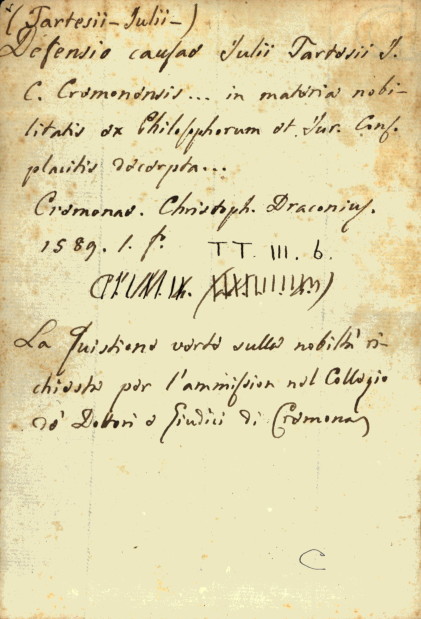 (Tartesii - Julii -)
Defensio causae Julii Tartesii J.
C. Cremonensis... in materia nobi-
litatis ex Philosophorum et Jur. Cons.
placitis decerpta...
Cremonae. Christoph. Draconius.
1589. 1. f. TT. III. 6.
La Quistione verte sulla nobiltà ri-
chiesta per l'ammission nel Collegio
de' Dottori e Giudici di Cremona
C